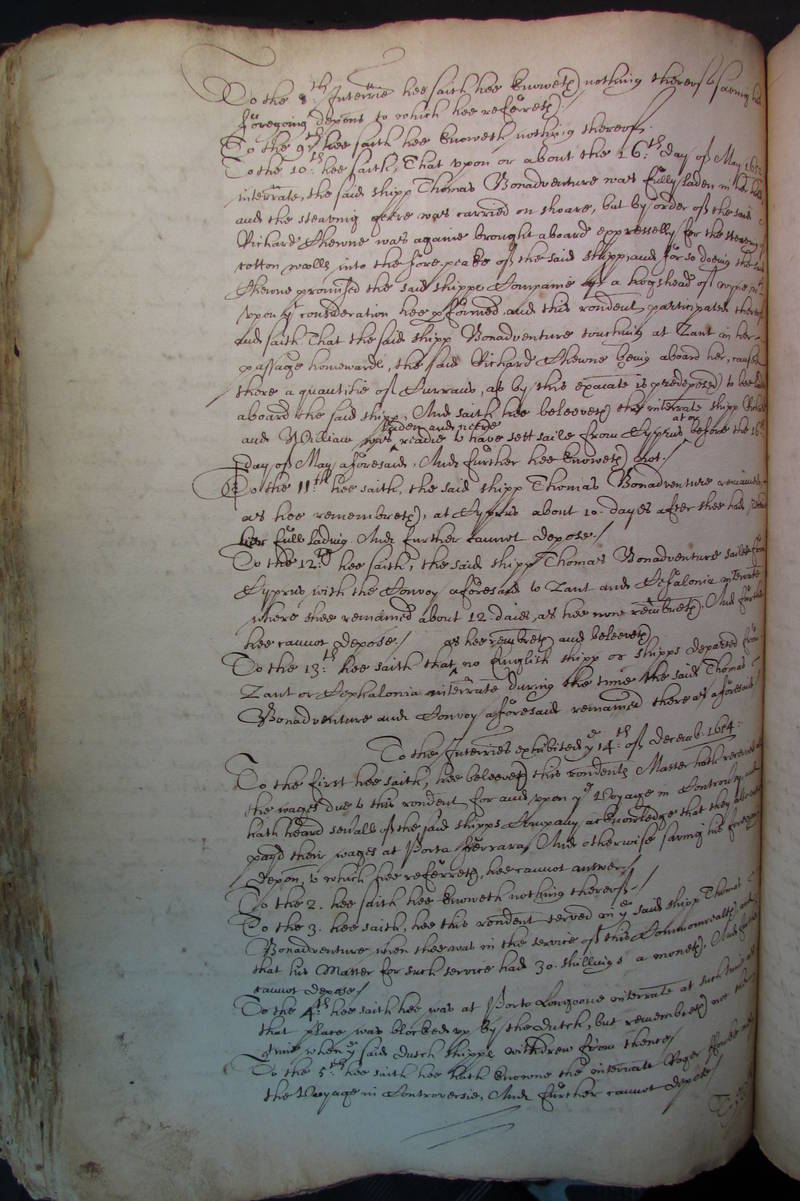 To the 8th Interrie hee saith hee knoweth nothing thereof saving his
foregoing depont to which hee referreth.
To the 9th hee saith hee knoweth nothing thereof.
To the 10:th hee saith, That upon or about the 16:th day of May 1652
interrate, the said shipp Thomas Bonadventure was fully laden in
and the steaving geere was carried on shoare, but by order of the said
Richard Shewne was againe brought aboard expressely for the steving
cotton wolls into the fore-peake of the said shipp, and for so doeing the said
Shewne promised the said shipps Companie a hogshead of wyne
upon yt consideration hee pformed and this rondent participated thereof
And saith That the said shipp Bonadventure touching at Zant in her
passage homewards, the said Richard Shewne being aboard her, caused
there a quantitie of Currans, as by this exaiate is predeposed to bee
aboard the said shipp, And saith hee beleeveth the interrate shipp
laden and neere at or
and William was readie to have sett saile from Cyprus before the 16th
day of May aforesaid, And further hee knoweth not./
To the 11:th hee saith, the said shipp Thomas Bonadventure remained
as hee remembreth, at Cyprus about 10. dayes after shee had
her full lading And further cannot depose./
To the 12:th hee saith, the said shipp Thomas Bonadventure sailed from
Cyprus with the Convoy aforesaid to Zant and Cefalonia interrate
where shee remained about 12 daies, as hee now remembreth, And further
hee cannot depose./ as hee remembreth and beleeveth
To the 13:th hee saith that no English shipp or shipps departed from
Zant or Cephalonia interrate during the time the said Thomas
Bonadventure and Convoy aforesaid remained there as aforesaid
To the Interries exhibited ye 14:th of Decemb. 1654:
To the first hee saith, hee beleeveth this rondents Master hath received
the wages due to this rondent for and upon ye Voyage in Controversy,
hath heard sevall of the said shipps Company acknowledge that they
payd their wages at Porta fferrara, And otherwise saving his foregoing
depon, to which hee referreth, hee cannot answer./
To the 2. hee saith hee knoweth nothing thereof./
To the 3. hee saith, hee this rondent served in ye said shipp Thomas
Bonadventure when shee was in the service of this Commonwealth, and
that his Master for such service had 30. shillings a moneth, And further
cannot depose/
To the 4th hee saith hee was at Porto Longoone interrate at such time as
that place was blocked up by the Dutch, but remembreth not the
time when ye said Dutch shipps withdrew from thence/
To the 5:th hee saith hee hath knowne the interrate Roger
the Voyage in Controversie, And further cannot depose/